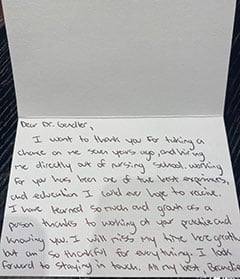 Dear Dr. Gendler,
I want to thank you for taking a
chance on me seven years ago, and hiring
me directly out of nursing school. Working
for you has been one of the best experiences,
and education I could ever hope to receive.
I have learned so much and grown as a
person thanks to working at your practice and
knowing you. I will miss my time here greatly
but am so thankful for everything. I look
forward to staying in touch. All my best,